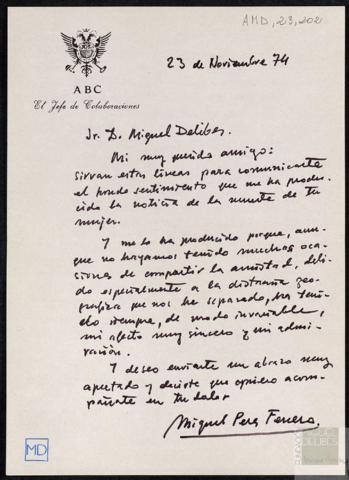 AMD, 23, 202
23 de Noviembre 74
ABC
El Jefe de Colaboraciones
Sr. D. Miguel Delibes.
Mi muy querido amigo:
sirvan estas líneas para comunicarte
el hondo sentimiento que me ha produ-
cido la noticia de la muerte de tu
mujer.
Y me lo ha producido porque, aun-
que no hayamos tenido muchas oca-
siones de compartir la amistad, debi-
do especialmente a la distancia geo-
gráfica que nos ha separado, has teni-
do siempre, de modo invariable,
mi afecto muy sincero y mi admi-
ración.
Y deseo enviarte un abrazo muy
apretado y decirte que quiero acom-
pañarte en tu dolor
Miguel Perez Ferrero.
MD
DELIBES